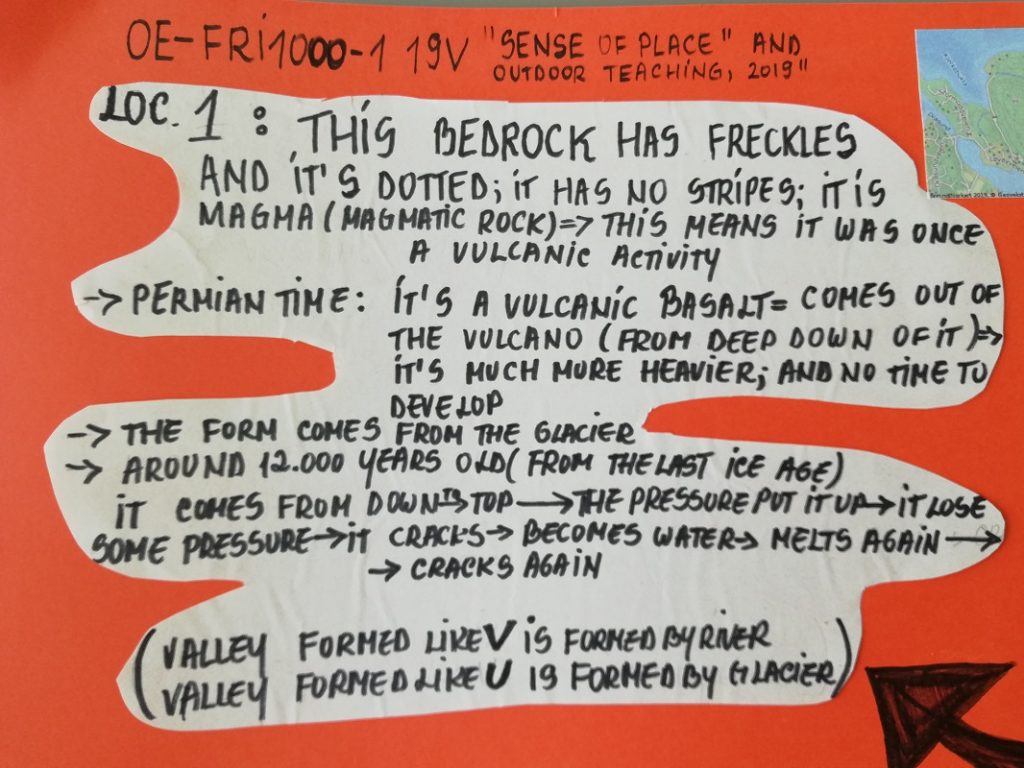 OE-FRi1000-1 19V "SENSE OF PLACE" AND
OUTDOOR TEACHING, 2019"
LOC. 1 : THIS BEDROCK HAS FRECKLES
AND IT'S DOTTED; IT HAS NO STRIPES; IT IS
MAGMA (MAGMATIC ROCK)=> THIS MEANS IT WAS ONCE
A VULCANIC ACTIVITY
-> PERMIAN TIME: IT'S A VULCANIC BASALT= COMES OUT OF
THE VULCANO (FROM DEEP DOWN OF IT)=>
IT'S MUCH MORE HEAVIER; AND NO TIME TO
DEVELOP
-> THE FORM COMES FROM THE GLACIER
-> AROUND 12.000 YEARS OLD (FROM THE LAST ICE AGE)
IT COMES FROM DOWN TO TOP -> THE PRESSURE PUT IT UP -> IT LOSE
SOME PRESSURE -> IT CRACKS -> BECOMES WATER -> MELTS AGAIN ->
-> CRACKS AGAIN
(VALLEY FORMED LIKE V IS FORMED BY RIVER
VALLEY FORMED LIKE U IS FORMED BY GLACIER)